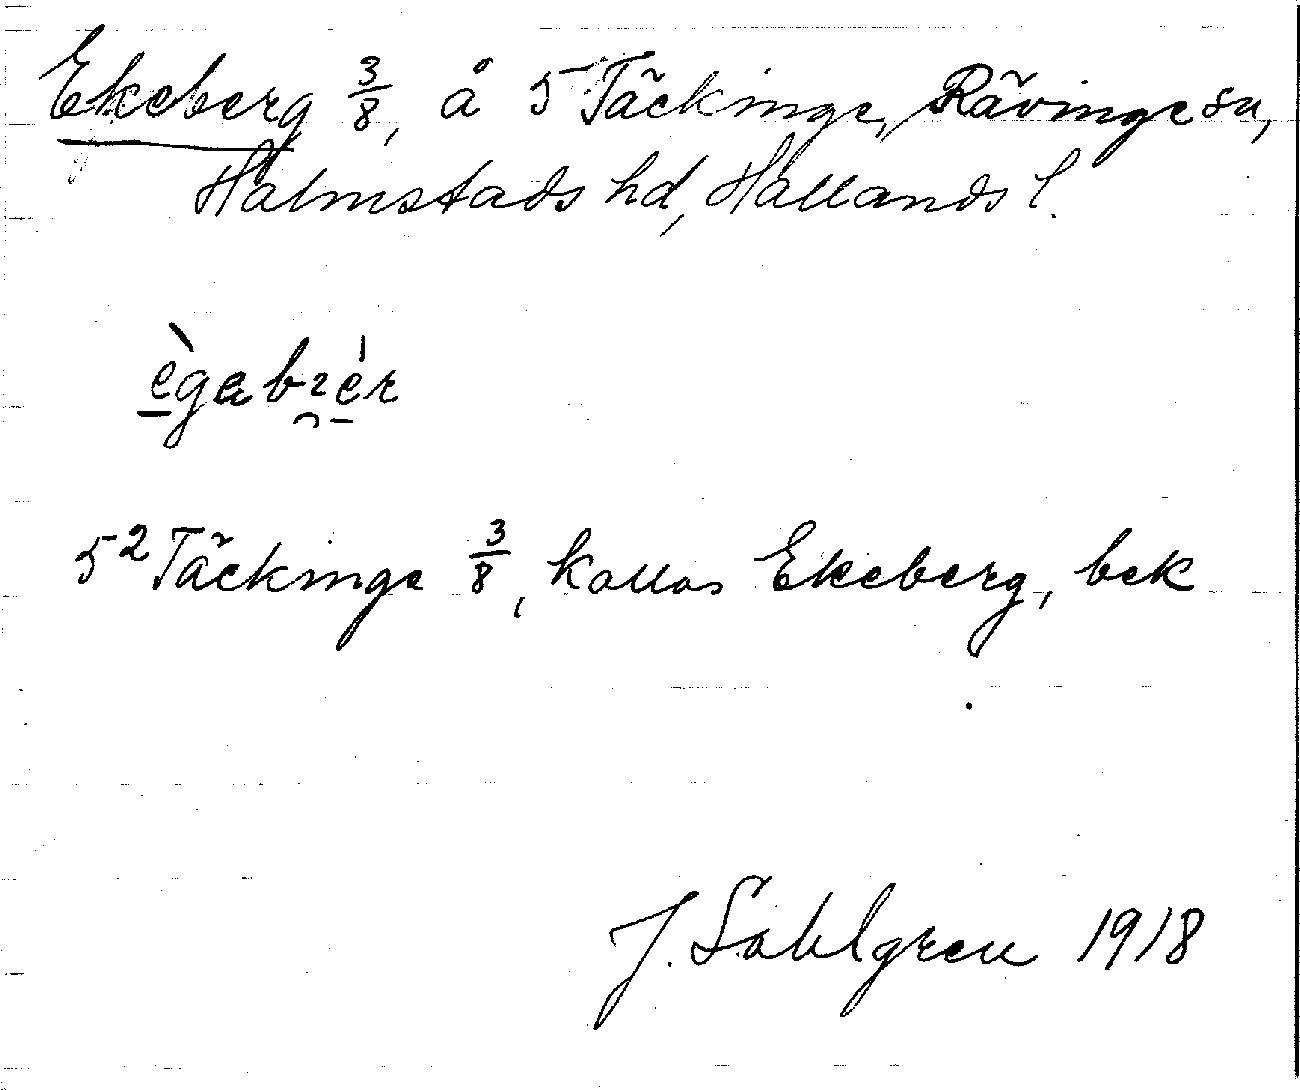 Ekeberg 3/8, å 5 Täckinge, Rävinge sn,
Halmstads hd, Hallands l.
ègabrér
5² Täckinge 3/8, kallas Ekeberg, bek
J. Sahlgren 1918